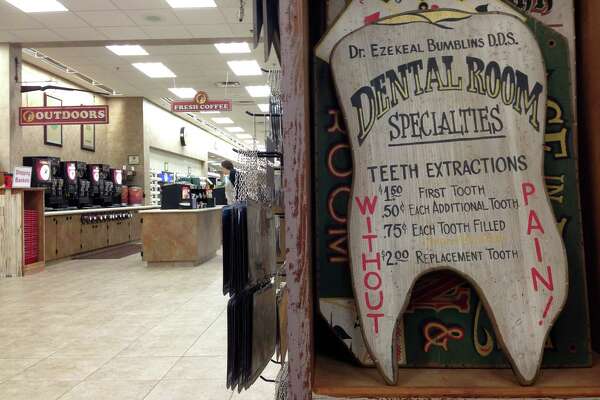 OUTDOORS
FRESH COFFEE
Shopping
Baskets
Dr. Ezekeal Bumblins D.D.S.
DENTAL ROOM
SPECIALTIES
TEETH EXTRACTIONS
$1.50 FIRST TOOTH
.50¢ EACH ADDITIONAL TOOTH
75¢ EACH TOOTH FILLED
$2.00 REPLACEMENT TOOTH
WITHOUT
PAIN!
ROOM
&